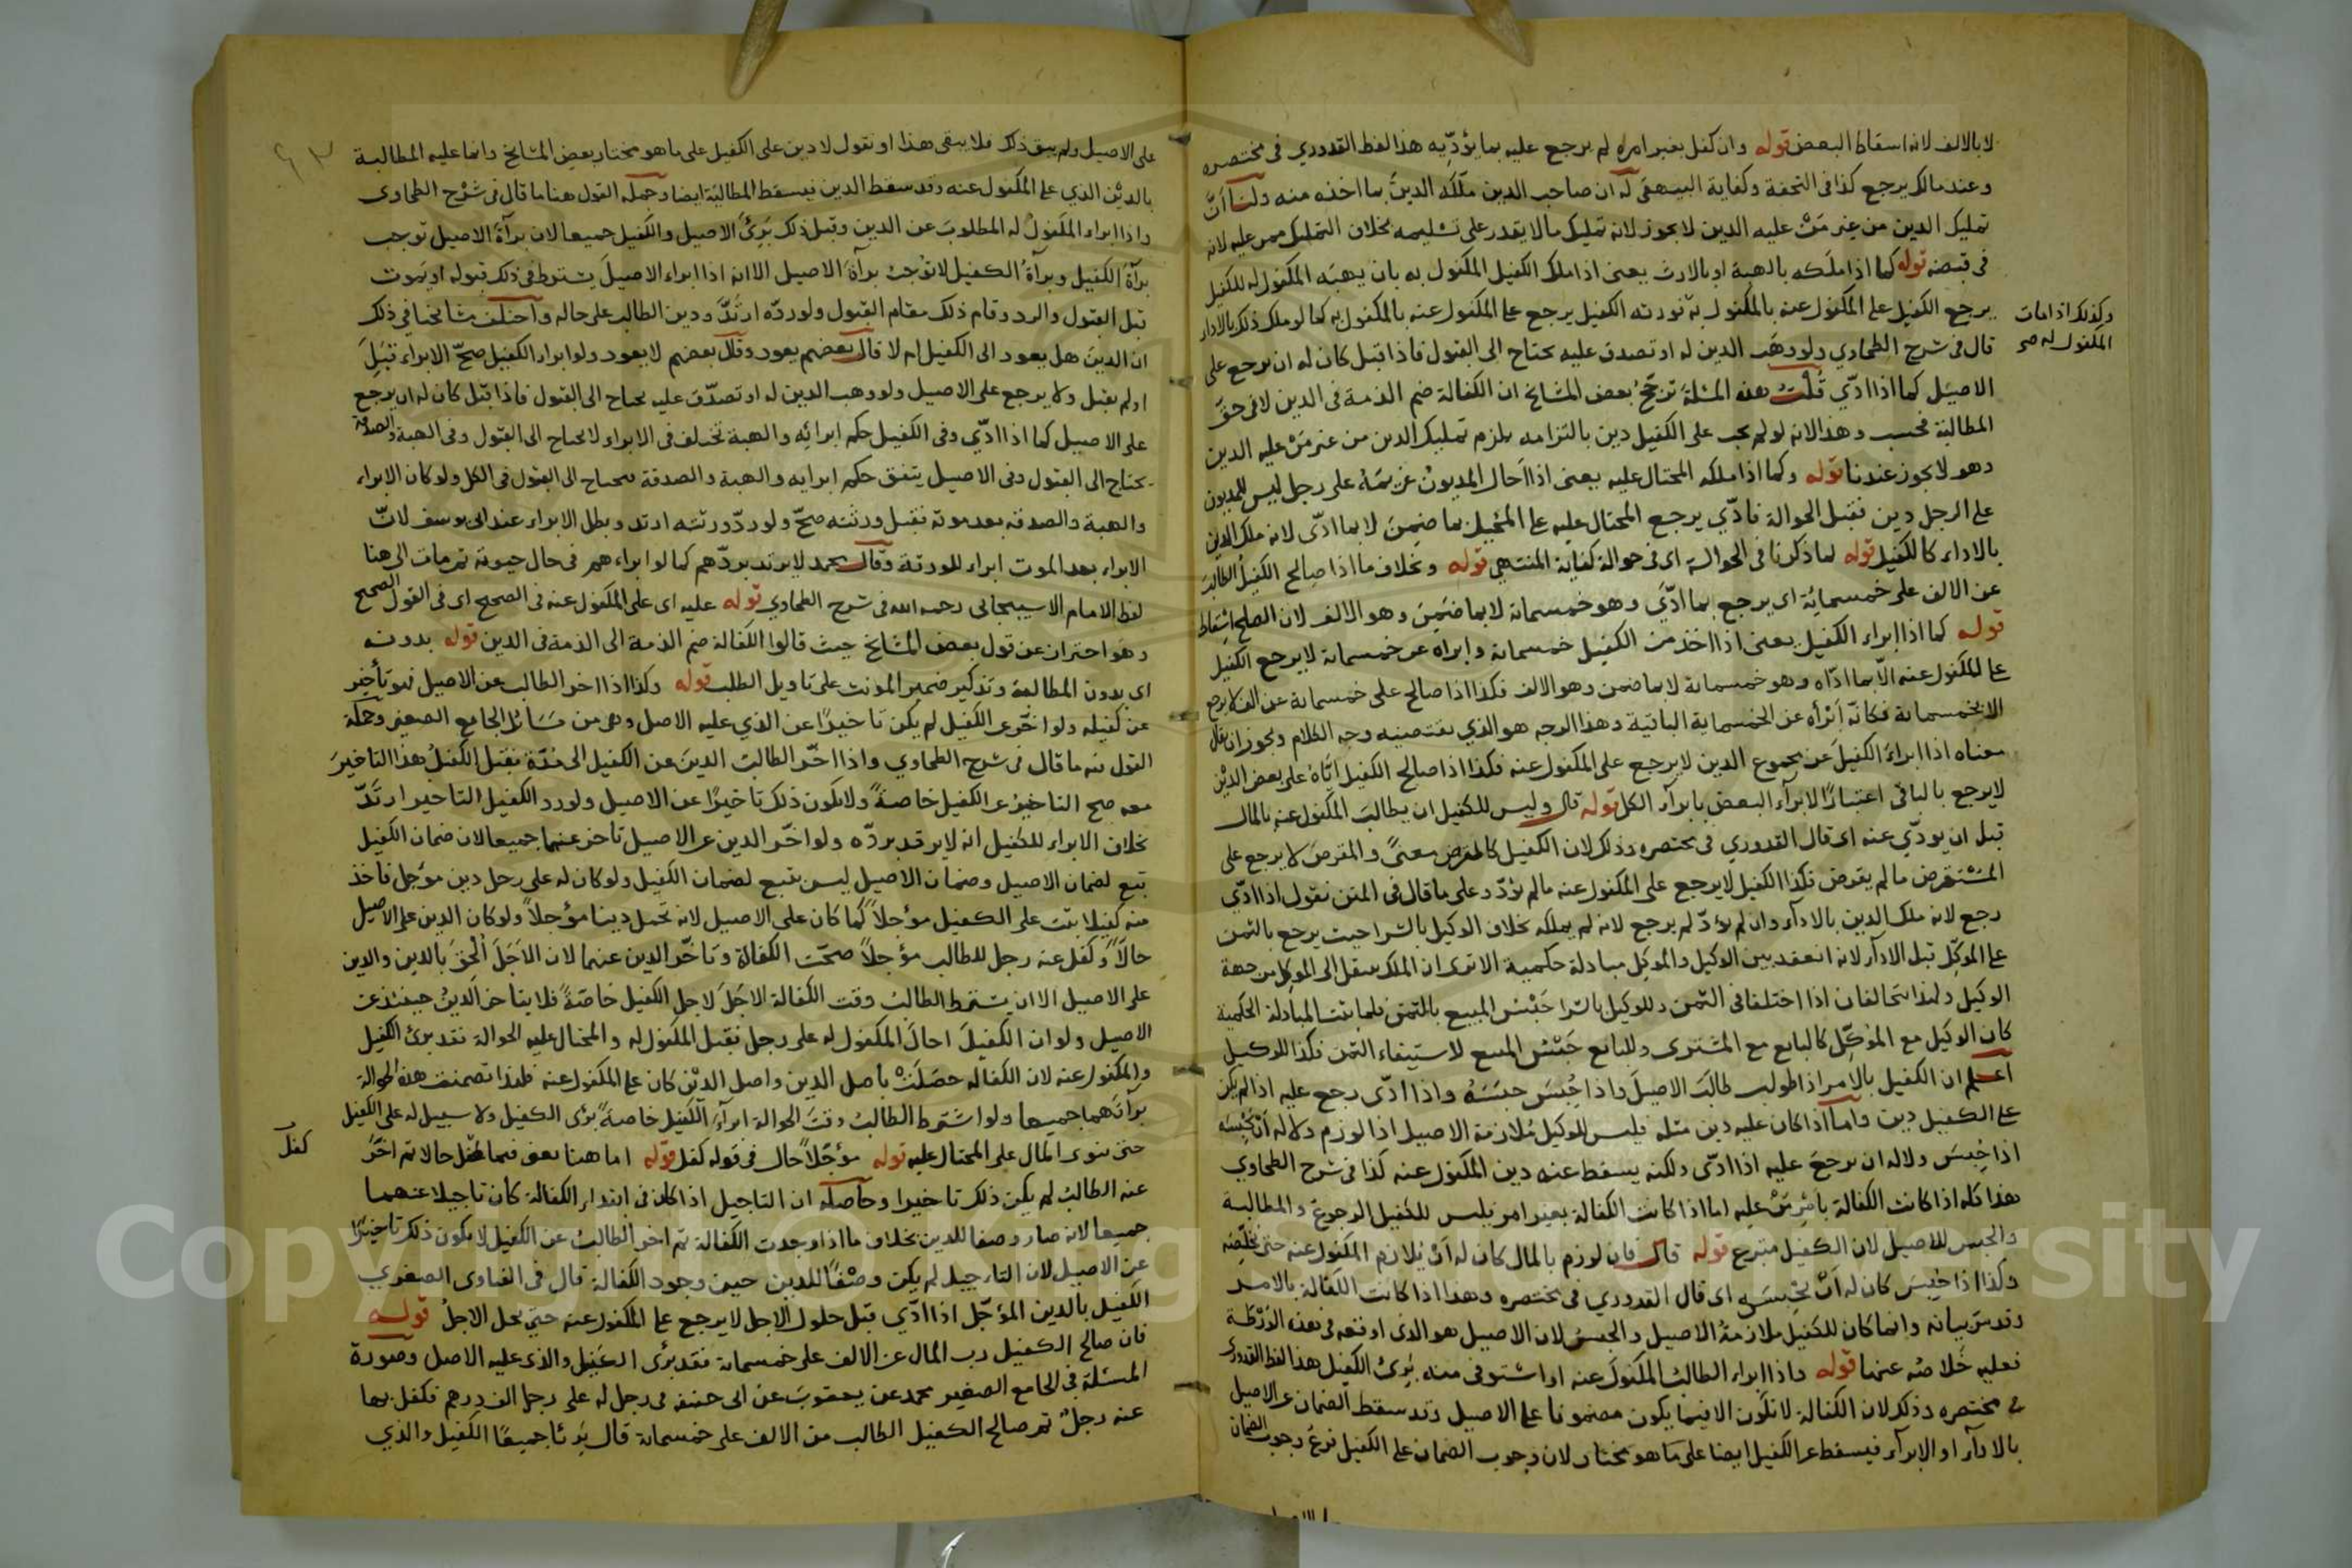 لا بالالف لانه اسقاط البعض قوله وان كفل بغير امره لم يرجع عليه بما يؤدّيه هذا لفظ القدوري في مختصره
وعند مالك يرجع كذا في التحفة وكفاية البيهقى له ان صاحب الدين ملّكه الدينَ بما اخذه منه ولنا انّ
تمليك الدين من غير مَنْ عليه الدين لا يجوز لانه تمليك مالا يقدر على تسليمه بخلاف التمليك ممن عليه لانه
في قبضه قوله كما اذا ملَكه بالهبة او بالارث يعنى اذا ملك الكفيل المكفول به بان يهبَه المكفول له للكفيل
يرجع الكفيل على المكفول عنه بالمكفول به فورثه الكفيل يرجع على المكفول عنه بالمكفول به كما لو ملك ذلك بالاداء
وكذلك اذا مات
المكفول له صح
قال في شرح الطحاوي ولو وهَب الدين له او تصدق عليه يحتاج الى القبول فاذا قبل كان له ان يرجع على
الاصيل كما اذا ادّي قُلْتُ هذه المسئلة ترجّحُ بعض المشايخ ان الكفالة ضم الذمة فى الدين لا فى حقّ
المطالبة فحسب وهذا لانه لو لم يجب على الكفيل دين بالتزامه يلزم تمليك الدين من غير مَنْ عليه الدين
وهو لا يجوز عندنا قوله وكما اذا ملكه المحتال عليه يعنى اذا احَال المديونُ غريمَهُ على رجل ليس للمديون
على الرجل دين فقبل الحوالة فادّي يرجع المحتال عليه على المُحيل بما ضمِنَ لا بما ادّى لانه ملك الدين
بالاداء كالكفيل قوله لما ذكرنا في الحوالة اى فى حوالة كفاية المنتهي قوله وبخلاف ما اذا صالح الكفيلُ الطالبَ
عن الالف على خمسمايُة اى يرجع بما ادَّي وهو خمسمائة لا بما ضَمِنَ وهو الالف لان الصلح اسْقاط
قوله كما اذا ابراء الكفيل يعنى اذا اخذ من الكفيل خمسمائة وابراه عن خمسمائة لا يرجع الكفيل
على المكفول عنه الّا بما ادّاه وهو خمسمائة لا بما ضمن وهو الالف فكذا اذا صالح على خمسمائة عن الف لا يرجع
الا بخمسمائة فكانّه اَبْرأه عن الخمسماية الباقية وهذا الوجه هو الذي يقتضيه وجه الكلام ويجوز ان يقال
معناه اذا ابراءَ الكفيلَ عن مجموع الدين لا يرجع على المكفول عنه فكذا اذا صالح الكفيل ايّاهُ على بعض الديْن
لا يرجع بالباقى اعتبارًا لابرآء البعض بابرآء الكل قوله قال وليس للكفيل ان يطالبَ المكفول عنه بالمال
قبل ان يودّي عنه اى قال القدوري فى مختصره وذلك لان الكفيل كالمقرض معنىً والمقرض لا يرجع على
المسْتقرض ما لم يقرض فكذا الكفيل لا يرجع على المكفول عنه مالم يؤدّ وعلى ما قال فى المتن نقول اذا ادّي
رجع لانه ملك الدين بالادآء وان لم يؤدّ لم يرجع لانه لم يملكه بخلاف الوكيل بالشرا حيث يرجع بالثمن
على الموكّل قبل الادآء لانه انعقد بين الوكيل والموكِل مبادلة حكمية الا ترى ان الملك ينتقل الى الموكل من جهة
الوكيل ولهذا يتحالفان اذا اختلفا فى الثمن وللوكيل بالشرا حَبْسُ المبيع بالثمن فلما ثبت المبادلة الحكمية
كان الوكيل مع المؤكّل كالبايع مع المشترى وللبايع حَبْسُ المبيع لاستيفاء الثمن فكذا للوكيل
اعلم ان الكفيل بالامر اذا طولب طالَبَ الاصيلَ واذا حُبِسَ حبَسَهُ واذا ادّى رجع عليه اذا لم يكن
على الكفيل دين واما اذا كان عليه دين مثله فليس للوكيل مُلازمة الاصيل اذا لوزم ولا له اَنْ يَحْبِسَه
اذا حُبسَ ولا له ان يرجعَ عليه اذا ادّى ولكنه يسقط عنه دين المكفول عنه كذا فى شرح الطحاوي
هذا كله اذا كانت الكفالة بامْرِ مَنْ عليه اما اذا كانت الكفالة بغير امر فليس للكفيل الرجوع والمطالبة
والحبس للاصيل لان الكفيل متبرع قوله قال فان لوزم بالمال كان له اَنْ يُلازم المكفول عنه حتى يخلّصه
وكذا اذا حُبِسَ كان له اَنْ يَحْبسَه اى قال القدوري فى مختصره وهذا اذا كانت الكفالة بالامر
وقد مَرّ بيانه وانما كان للكفيل ملازمةُ الاصيل والحبسُ لان الاصيل هو الذى اوقعه فى هذه الوَرْطة
فعليه خَلاصُه عنها قوله واذا ابراء الطالبُ المكفولَ عنه او اسْتوفى منه بَرِئَ الكفيل هذا لفظ القدوري
في مختصره وذلك لان الكفالة لا تكَون الا فيما يكون مضمونا على الاصيل وقد سقط الضمان عن الاصيل
بالادآء او الابرآء فيسقط عن الكفيل ايضا على ما هو مختار لان وجوب الضمان على الكفيل فرعُ وجوب الضمان
على الاصيل ولم يبق ذلك فلا يبقى هذا او نقول لا دين على الكفيل على ما هو مختار بعض المشايخ وانما عليه المطالبة
بالديْن الذي على المكفول عنه وقد سقط الدين فيسقط المطالبَة ايضا وجملة القول هنا ما قال فى شرْح الطحاوى
واذا ابراء المكفولُ له المطلوبَ عن الدين وقبل ذلك بَرِئَ الاصيل والكفيل جميعا لان برآةَ الاصيل توجب
برآةَ الكفيل وبرآةُ الكفيل لا تُوجبُ برآةَ الاصيل الا انه اذا ابراء الاصيلَ يشترط فى ذلك قبوله او يموت
قبل القبول والرد وقام ذلك مقام القبول ولو ردّه ارتَدَّ ودين الطالب على حاله واختلف مشايخنا فى ذلك
ان الدين هل يعود الى الكفيل ام لا قال بعضهم يعود وقال بعضهم لا يعود ولو ابراء الكفيل صحّ الابراء قبِلَ
او لم يقبل ولا يرجع على الاصيل ولو وهب الدين له او تصدّق عليه يحتاج الى القبول فاذا قبل كان له ان يرجع
على الاصيل كما اذا ادّي وفى الكفيل حكم ابرائِه والهبة تختلف فى الابراء لا يحتاج الى القبول وفى الهبة والصدقة
يحتاج الى القبول وفى الاصيل يتفق حكم ابرايه والهبة والصدقة يحتاج الى القبول فى الكل ولو كان الابراء
والهبة والصدقة بعد موته فقبل ورثته صحّ ولو ردّ ورثته ارتد وبطل الابراء عند ابى يوسف لانّ
الابراء بعد الموت ابراء للورثة وقال محمد لا يرتد بردّهم كما لو ابراءهم فى حال حيوته ثم مات الى هنا
لفظ الامام الاسبيجابى رحمه الله فى شرح الطحاوي قوله عليه اى على المكفول عنه فى الصحيح اى فى القول الصحيح
وهو احتراز عن قول بعض المشايخ حيث قالوا الكفالة ضم الذمة الى الذمة فى الدين قوله بدونه
اى بدون المطالبة وتذكير ضمير المونث على تاويل الطلب قوله وكذا اذا اخر الطالب عن الاصيل فهو تأخير
عن كفيله ولو اخّر عن الكفيل لم يكن تاخيرًا عن الذي عليه الاصل وهى من مسَائل الجامع الصغير وجملة
القول فيه ما قال فى شرح الطحاوي واذا اخّر الطالبُ الدينَ عن الكفيل الى مُدّة فقبَل الكفيلُ هذا التاخيرَ
معه صح التاخيرُ عن الكفيل خاصةً ولا يكون ذلك تاخيرًا عن الاصيل ولو رد الكفيل التاخير ارتَدّ
بخلاف الابراء للكفيل انه لا يرتد بردّه ولو اخّر الدين عن الاصيل تأخر عنهما جميعا لان ضمان الكفيل
تبع لضمان الاصيل وضمان الاصيل ليس بتبع لضمان الكفيل ولو كان له على رجل دين مؤجل فأخذ
منه كفيلا ثبت على الكفيل مؤجلاً كما كان على الاصيل لانه تحمل دينا مؤجلاً ولو كان الدين على الاصيل
حالاً وكفل عنه رجل للطالب مؤجلاً صحّت الكفالة وتاخّر الدين عنهما لان الاَجَلَ اُلْحِقَ بالدين والدين
على الاصيل الا ان يشترط الطالبُ وقت الكفالة الاجَلَ لاجل الكفيل خاصّةً فلا يتاخر الدينُ حينئذ عن
الاصيل ولو ان الكفيلَ احالَ المكفول له على رجل فقبل المكفول له والمحتال عليه الحوالة فقد برئ الكفيل
والمكفول عنه لان الكفالة حصَلَتْ بأصل الدين واصل الديْن كان على المكفول عنه فلهذا تضمنت هذه الحوالة
برآتهما جميعا ولو اشترط الطالبُ وقتَ الحوالة ابرآءَ الكفيل خاصةً برئ الكفيل ولا سبيل له على الكفيل
حتى يتوى المال على المحتال عليه قوله مؤجّلاً حال فى قوله كفل قوله اما هنا يعنى فيما كفل حالا ثم اخّرَ
كفلَ
عنه الطالبُ لم يكن ذلك تاخيرا وحاصله ان التاجيل اذا كان فى ابتداء الكفالة كان تاجيلا عنهما
جميعا لانه صار وصفا للدين بخلاف ما اذا وجدت الكفالة ثم اخر الطالبُ عن الكفيل لا يكون ذلك تاخيرًا
عن الاصيل لان التاجيل لم يكن وصْفًا للدين حين وجود الكفالة قال فى الفتاوى الصغري
الكفيل بالدين المؤجّل اذا ادّي قبل حلول الاجل لا يرجع على المكفول عنه حتى يحل الاجلُ قوله
فان صالح الكفيل رب المال عن الالف على خمسمائة فقد برئ الكفيل والذى عليه الاصل وصورة
المسئلة فى الجامع الصغير محمد عن يعقوبَ عن ابى حنيفة فى رجل له على رجل الف درهم فكفل بها
عنه رجلٌ ثم صالح الكفيل الطالب من الالف على خمسمائة قال بَرِئا جميعًا الكفيل والذي
Copyright © King Saud University